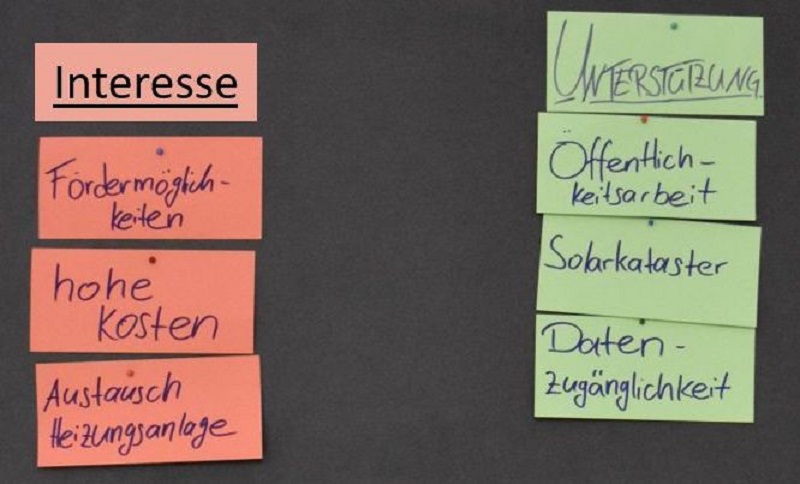 Interesse
Fördermöglich-
keiten
hohe
Kosten
Austausch
Heizungsanlage
UNTERSTÜTZUNG
Öffentlich-
keitsarbeit
Solarkataster
Daten-
zugänglichkeit